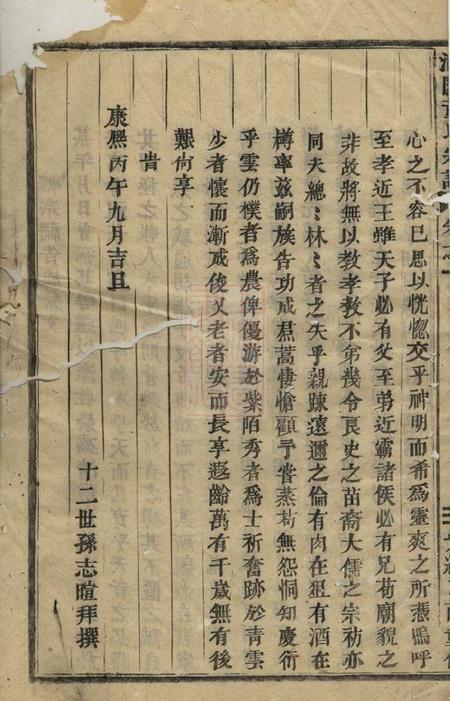 心之不容已思以恍惚交乎神明而希爲靈爽之所憑嗚呼
至孝近王雖天子必有父至弟近霸諸侯必有兄苟廟貌之
非故將無以教孝教不第幾令良史之苗裔大儒之宗祊亦
同夫總〻林〻者之失乎親踈遠邇之倫有肉在俎有酒在
樽率兹嗣族告功成焄蒿悽愴顧予嘗蒸苟無怨恫知慶衍
乎雲仍樸者爲農俾優游於紫陌秀者爲士祈奮跡於青雲
少者懷而漸成俊乂老者安而長享遐齡萬有千歲無有後
艱尙享
旹
康熙丙午九月吉旦
十二世孫志暄拜撰